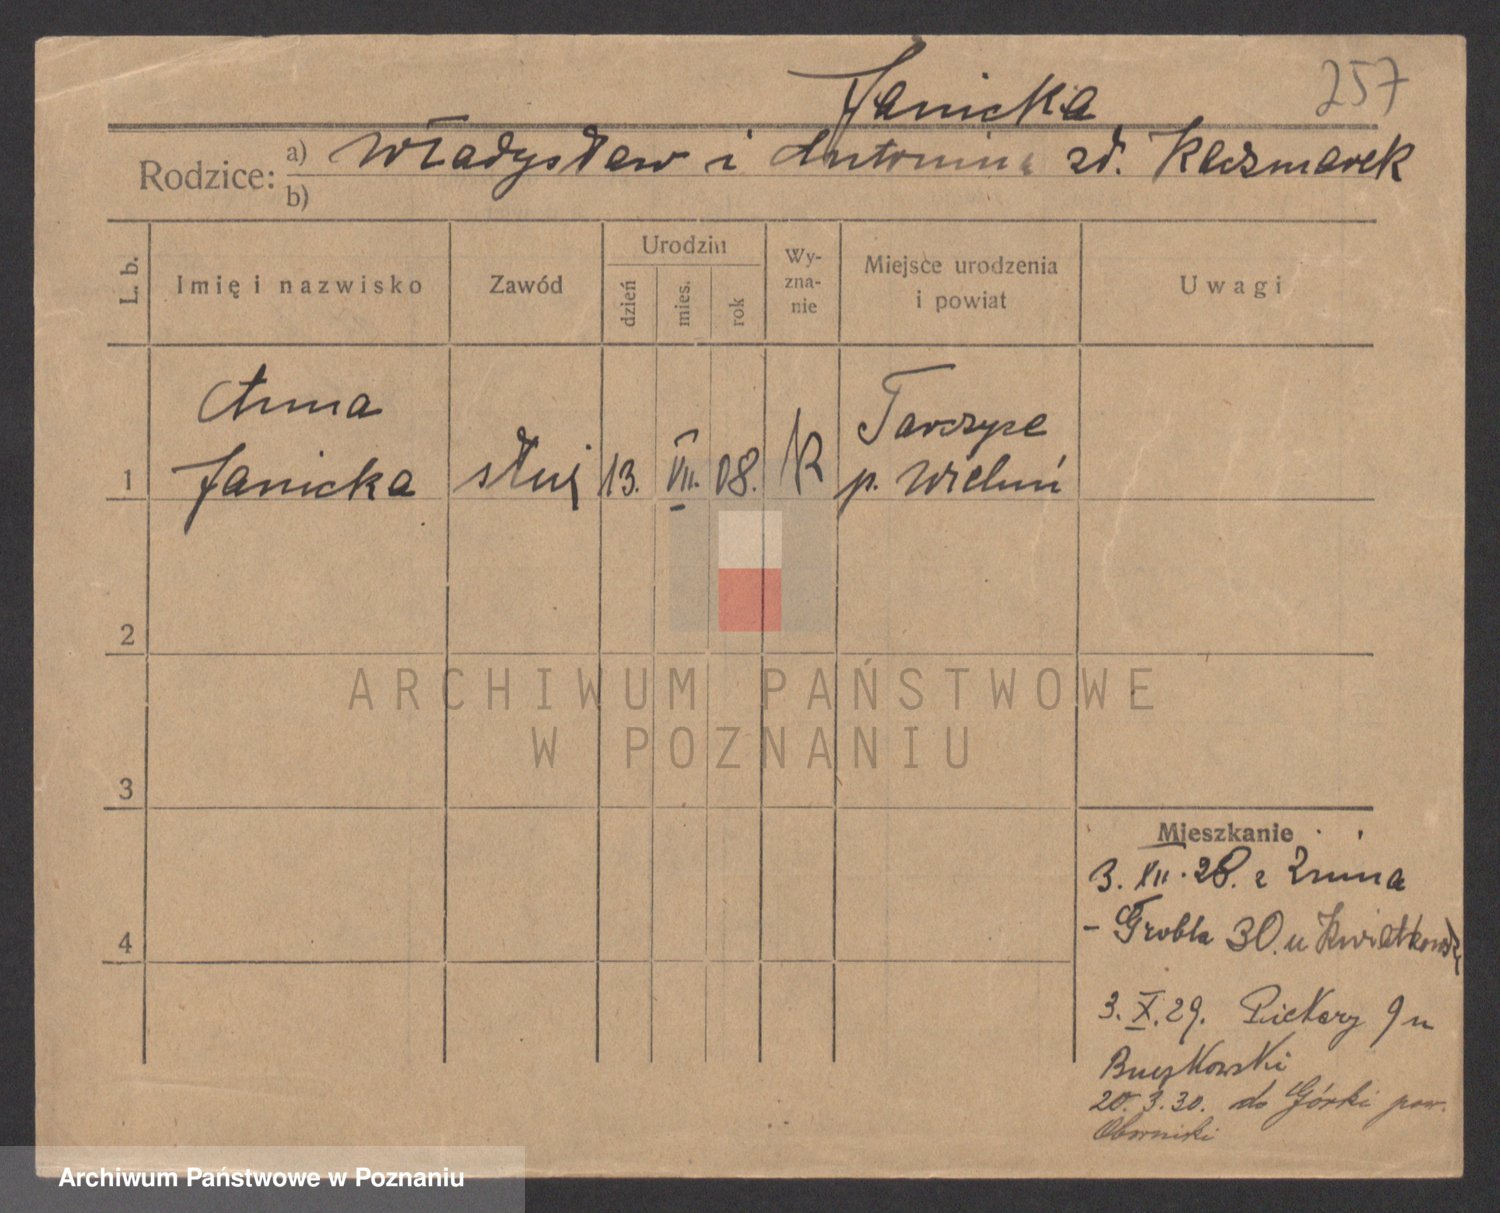 Janicka
257
Rodzice: a) Władysław i Antonina zd. Kaczmarek
b)
L. b. Imię i nazwisko Zawód Urodzin dzień mies. rok Wy-zna-nie Miejsce urodzenia i powiat Uwagi
Anna
Janicka
1 służ 13. VII. 08. K Tarczyce
p. Wieluń
2
ARCHIWUM PAŃSTWOWE
W POZNANIU
3
Mieszkanie
3. XII. 28. z Żnina
4
- Grobla 30. u Kwiatkowsk
3. X. 29. Piekary 9 u
20. 3. 30. do Górki pow.
Obornicki
Archiwum Państwowe w Poznaniu